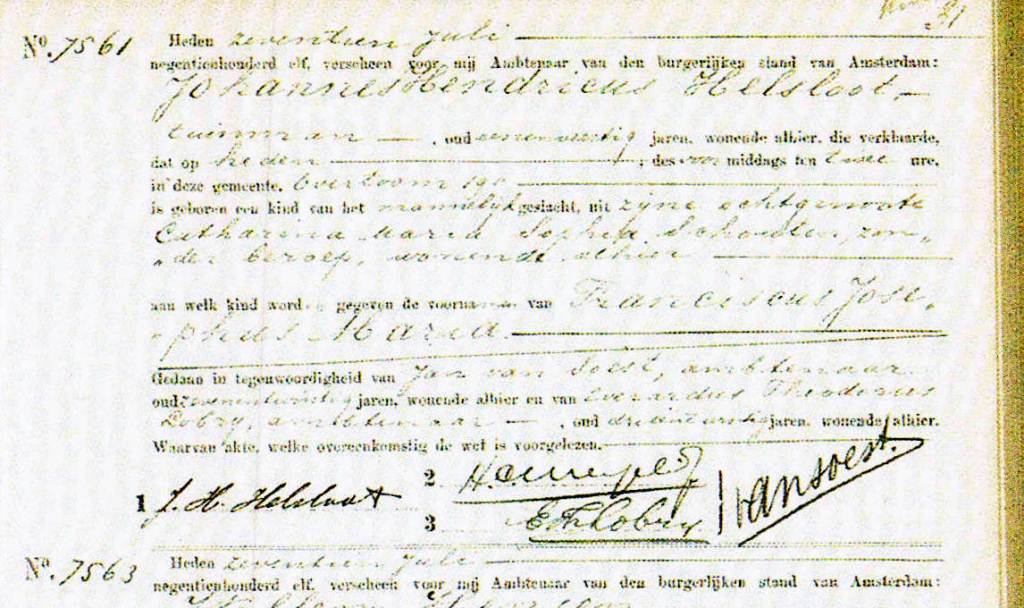 No. 7561 Heden zeventien Juli
negentienhonderd elf, verscheen voor mij Ambtenaar van den burgerlijken stand van Amsterdam:
Johannes Hendricus Helsloot
tuinman, oud eenenveertig jaren, wonende alhier, die verklaarde,
dat op heden, des voormiddags ten twee ure,
in deze gemeente, Overtoom
is geboren een kind van het mannelijk geslacht, uit zijne echtgenoote
Catharina Maria Sophia Schouten, zon„
„der beroep, wonende alhier
aan welk kind worden gegeven de voornamen van Franciscus Jose„
„phus Maria.
Gedaan in tegenwoordigheid van Jan van Soest, ambtenaar
oud zevenentwintig jaren, wonende alhier en van Everardus Theodorus
Lobry, ambtenaar, oud jaren, wonende alhier.
Waarvan akte, welke overeenkomstig de wet is voorgelezen.
1 J. H. Helsloot
2
3 E Th Lobry
J van Soest.
No. 7563 Heden zeventien Juli
negentienhonderd elf, verscheen voor mij Ambtenaar van den burgerlijken stand van Amsterdam: